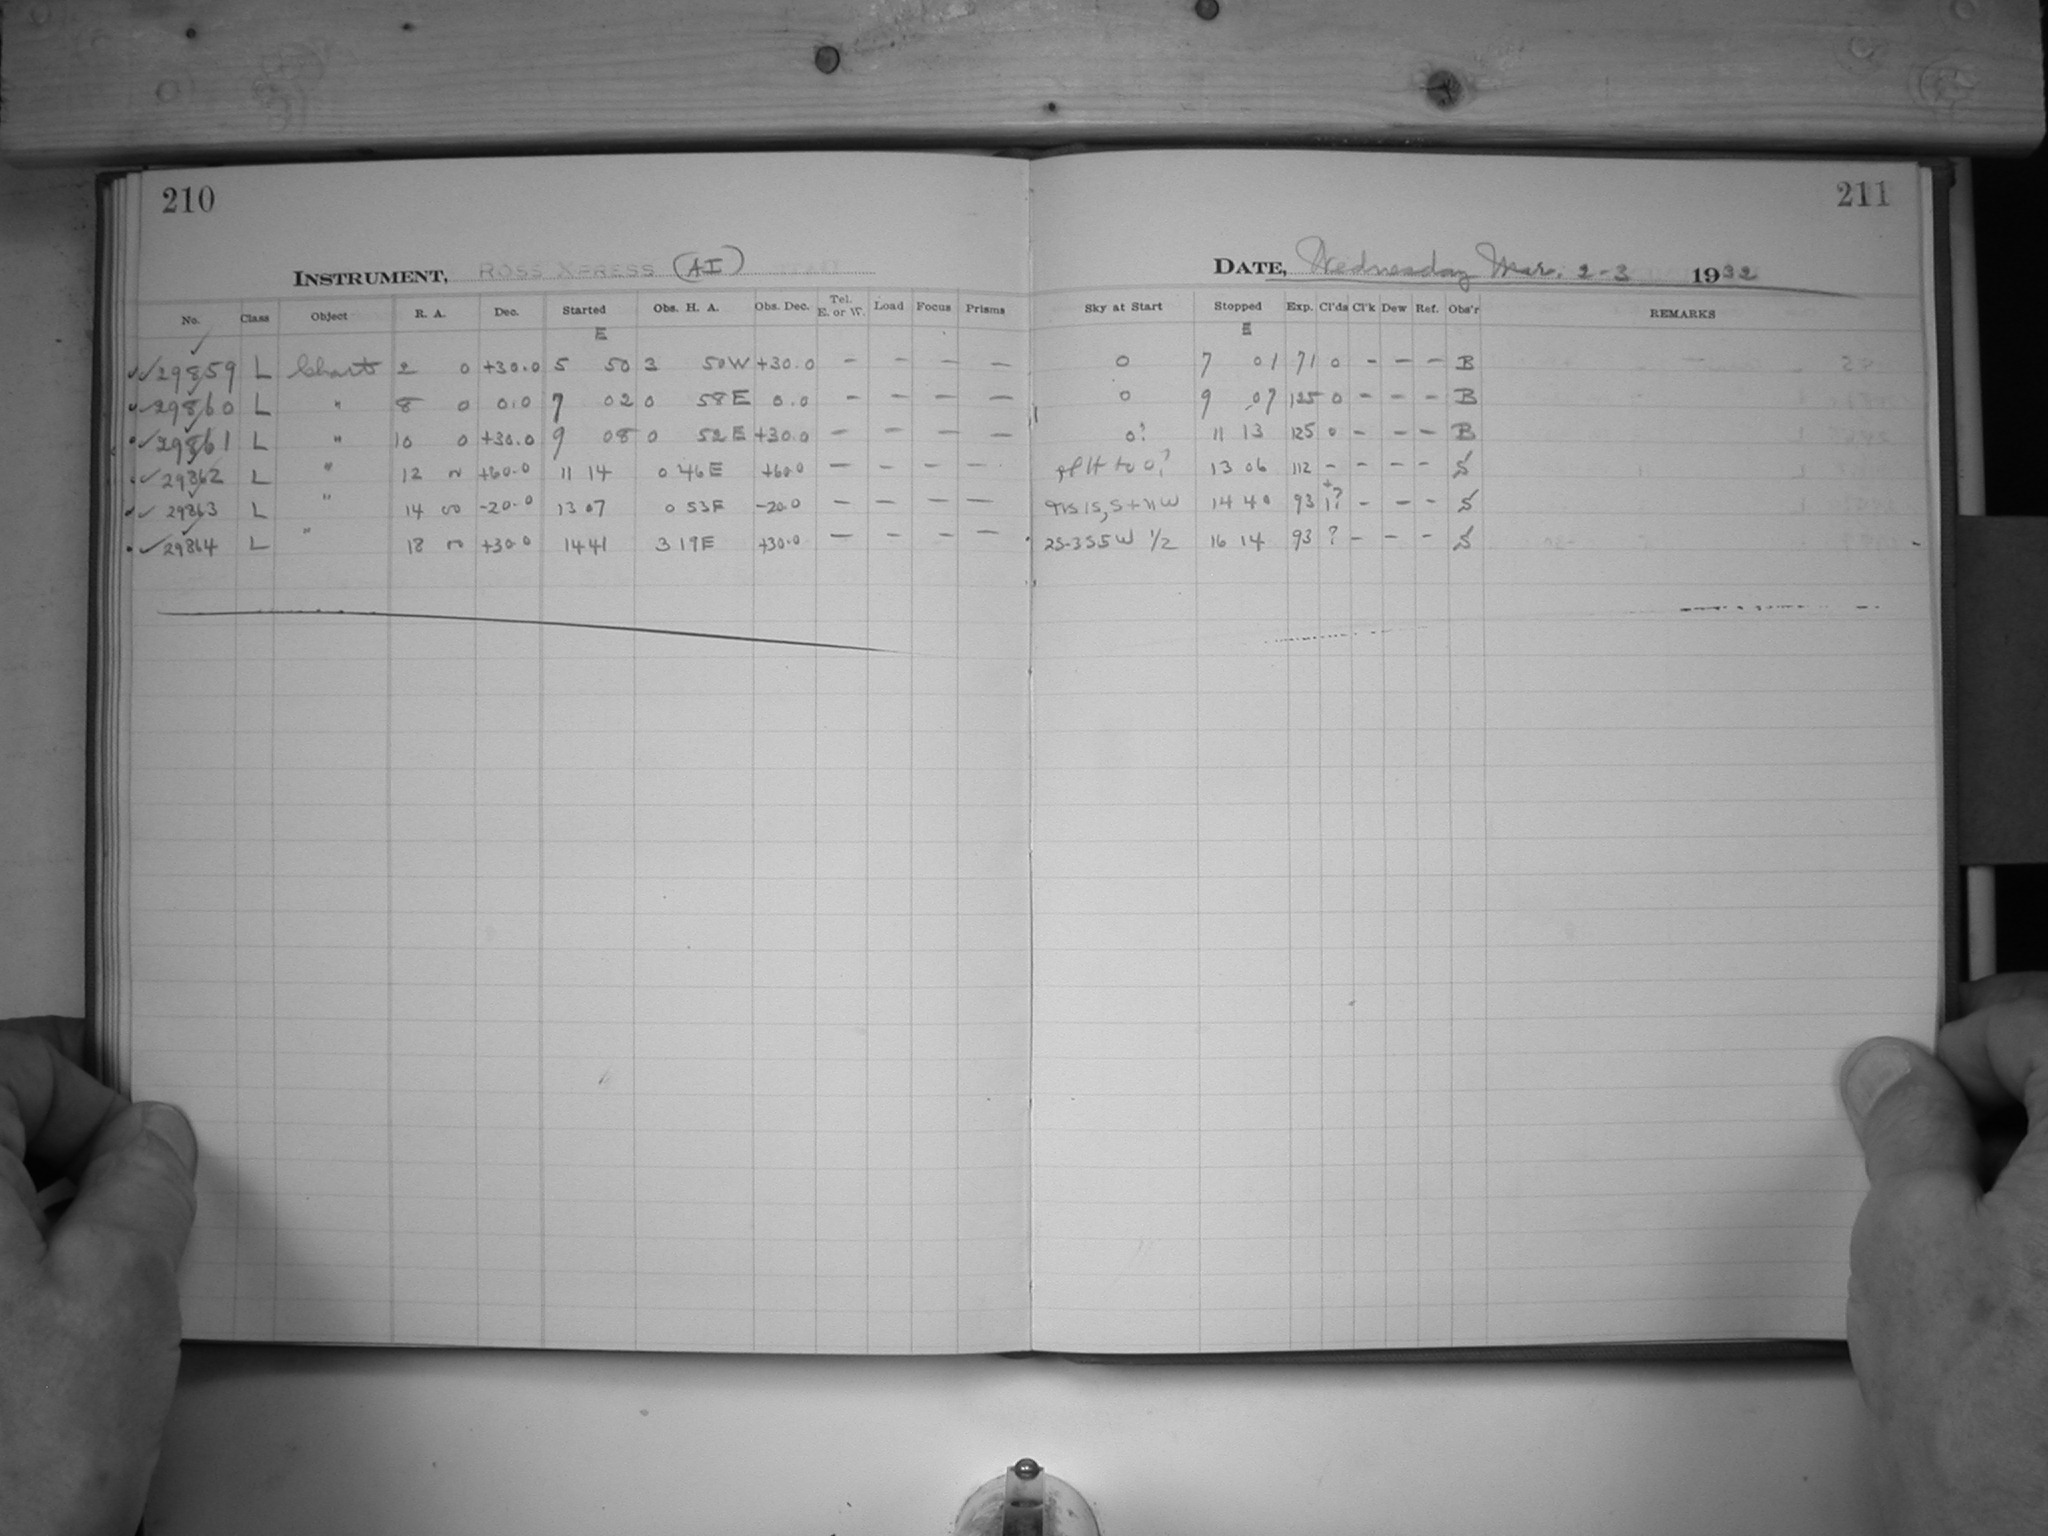 210
211
INSTRUMENT, ROSS XPRESS (AI)
DATE, Wednesday Mar. 2-3 1932
No. Class Object R. A. Dec. Started Obs. H. A. Obs. Dec. Tel. E. or W. Load Focus Prisms Sky at Start Stopped Exp. Cl'ds Cl'k Dew Ref. Obs'r REMARKS
E E
✓29859 L Charts 2 0 +30.0 5 50 3 50W +30.0 - - - - 0 7 01 71 0 - - - B
✓29860 L " 8 0 0.0 7 02 0 58E 0.0 - - - - 0 9 07 125 0 - - - B
✓29861 L " 10 0 +30.0 9 08 0 52E +30.0 - - - - 0? 11 13 125 0 - - - B
✓29862 L " 12 +60.0 11 14 0 46E +60.0 - - - - to 0? 13 06 112 - - - - S
✓29863 L " 14 -20.0 13 07 0 53E -20.0 - - - - S+NW 14 40 93 1? - - - S
✓29864 L " 18 +30.0 14 41 3 19E +30.0 - - - - 1/2 16 14 93 ? - - - S